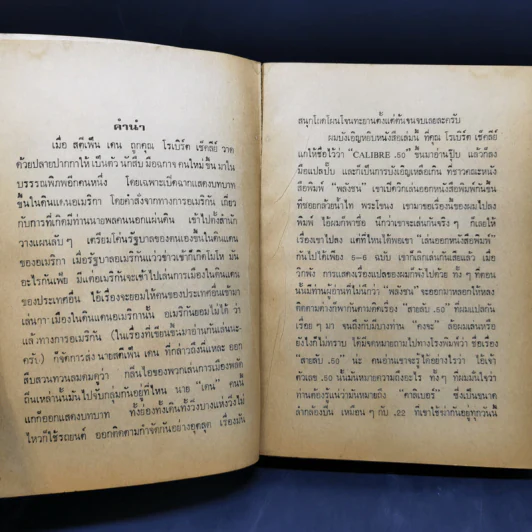 คำนำ
เมื่อ สตีเฟ็น เดน ถูกคุณ โรเบิร์ต เช็คลีย์ วาด
ด้วยปลายปากกาให้เป็นตัว นักสืบ มือฉกาจ คนใหม่ขึ้น มาใน
บรรณพิภพอีกคนหนึ่ง โดยเฉพาะเบิ่ดฉากแสดงบทบาท
ขึ้นในดินแดนอเมริกา โดยคำสั่งจากทางการอเมริกัน เกี่ยว
กับการที่เกิดมีท่านนายพลคนนอกแผ่นดิน เข้าไปตั้งสำนัก
วางแผนลับๆ เตรียมโค่นรัฐบาลของตนเองขึ้นในดินแดน
ของอเมริกา เมื่อรัฐบาลอเมริกันแววข่าวเข้าก็เกิดโมโห มัน
อะไรกันเพ้ย มีแต่อเมริกันจะเข้าไปเล่นการเมืองในดินแดน
ของประเทศอื่น ไอ้เรื่องจะยอมให้คนของประเทศอื่นเข้ามา
เล่นการเมืองในดินแดนอเมริกานั้น อเมริกันยอมไม่ได้ ว่า
แล้วทางการอเมริกัน (ในเรื่องที่เขียนขึ้นมาอ่านกันเล่นนะ-
ครับ) ก็จัดการส่ง นายสตีเฟ็น เดน ที่กล่าวถึงนี่แหละ ออก
สืบสวนทวนลมดมดูว่า กลิ่นไอของพวกเล่นการเมืองพลัด
ถิ่นเหล่านั้นมัน ไปจับกลุ่มกันอยู่ที่ไหน นาย "เดน" คนนี้
แกก็ออกแสดงบทบาท ทั้งย่องทั้งเดินทั้งวิ่งบางแห่งวิ่งไม่
ไหวก็ใช้รถยนต์ ออกติดตามกำจัดกันอย่างอุตลุต เรื่องมัน
สนุกโลดโผนโจนทะยานตั้งแต่ต้นจนจบเลยละครับ
ผมบังเอิญหยิบหนังสือเล่มนี้ ที่คุณ โรเบิร์ต เช็คลีย์
แกให้ชื่อไว้ว่า "CALIBRE .50" ขึ้นมาอ่านปุ๊บ แล้วก็ลง
มือแปลปั๊บ และก็เป็นการบังเอิญเหลือเกิน ที่ชาวคณะหนัง
สือพิมพ์ "พลังชน" เขามีคิวก็เล่นออกหนังสือพิมพ์กันขึ้น
ที่ซอกกล้วยน้ำไท พระโขนง เขามาขอเรื่องนี้ของผมไปลง
พิมพ์ ไอ้ผมก็พาซื่อ นึกว่าเขาจะเล่นกันจริงๆ ก็เลยให้
เรื่องเขาไปลง แต่ที่ไหนได้พอเขา "เล่นออกหนังสือพิมพ์"
กันไปได้เพียง 5-6 ฉบับ เขาก็เลิกเล่นกันเสียแล้ว เมื่อ
วิกพัง การแสดงเรื่องแปลของผมก็พังไปด้วย ทั้งๆ ที่ตอน
นั้นมีท่านผู้อ่านที่ไม่นึกว่า "พลังชน" จะออกมาหลอกให้หลง
ติดตามต่างก็พากันตามติดเรื่อง "สายลับ .50" ที่ผมแปลกัน
เรื่อยๆ มา จนถึงกับมีบางท่าน
ยังไงก็ไม่ทราบ ได้มีจดหมายถามไปทางโรงพิมพ์ว่า ชื่อเรื่อง
"สายลับ .50" น่ะ คนอ่านเขาจะรู้ได้อย่างไรว่า ไอ้เจ้า
ตัวเลข .50 นั้นมันหมายความถึงอะไร ทั้งๆ ที่ผมมั่นใจว่า
ท่านต้องรู้แน่ว่ามันหมายถึง "คาลิเบอร์" ซึ่งเป็นขนาด
ลำกล้องปืน เหมือนๆ กับ .22 ที่เขาใช้ฆ่ากันอยู่ทุกวันนี้